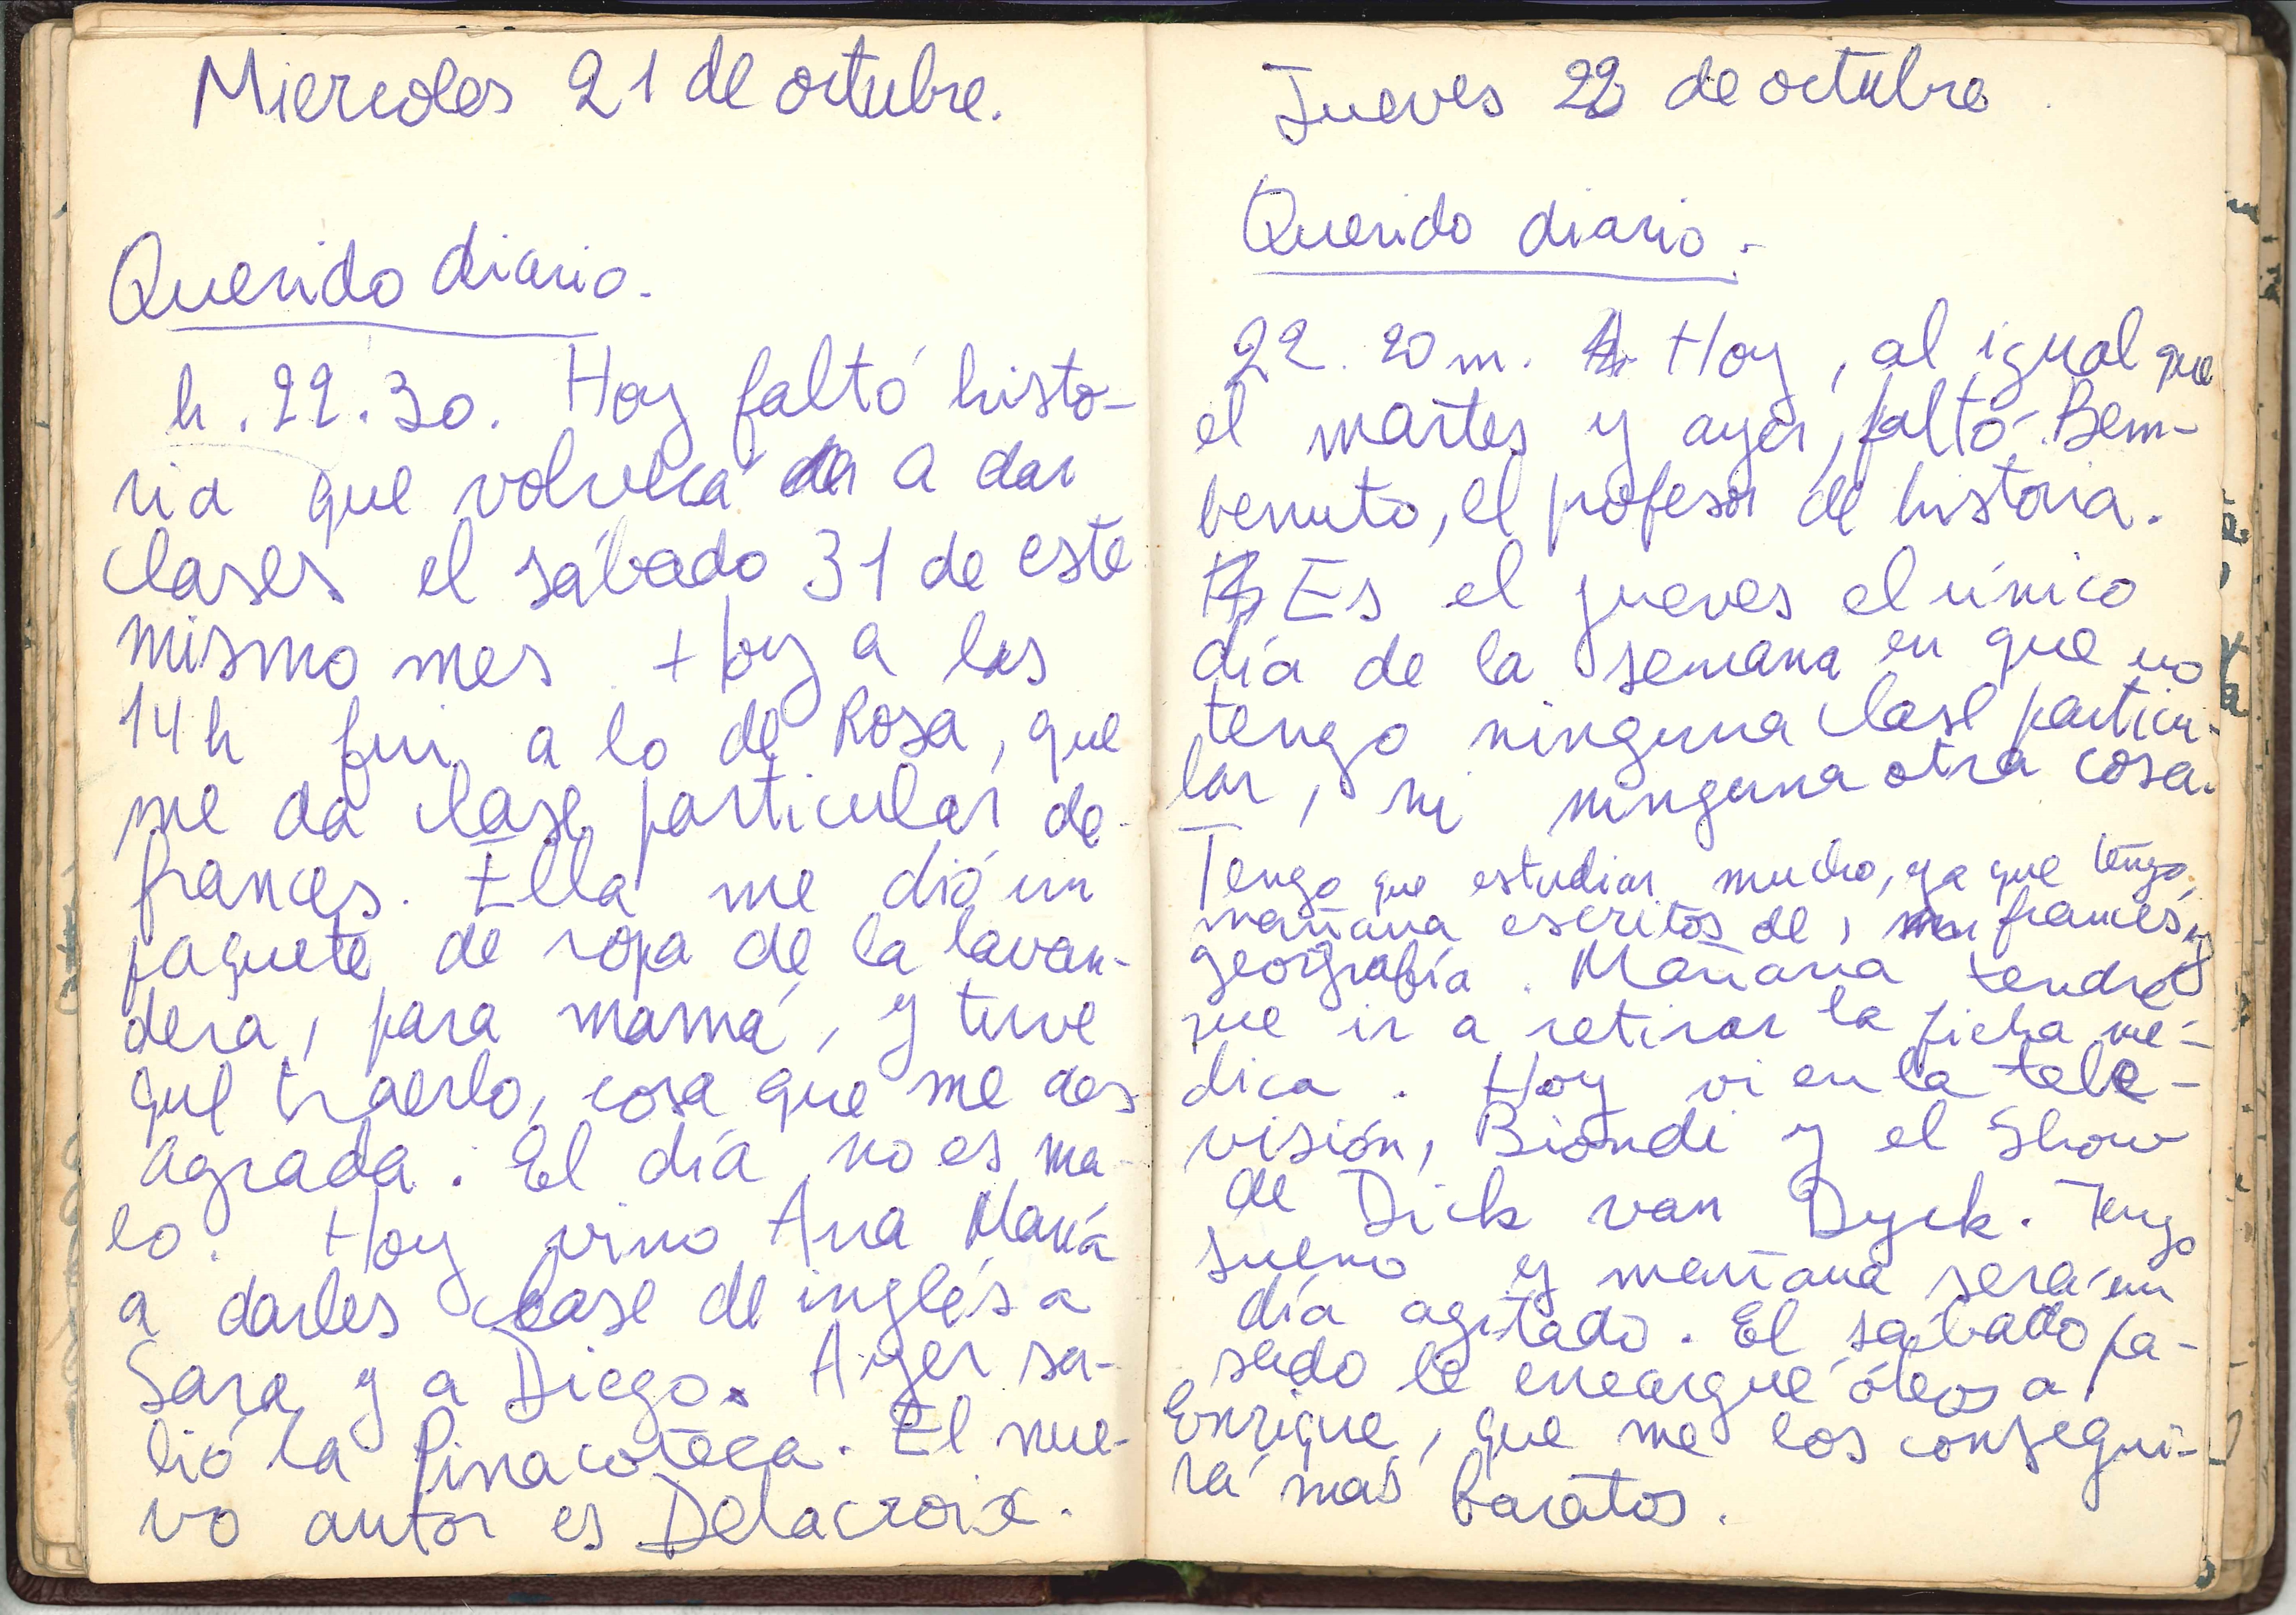 Miercoles 21 de octubre.
Querido diario.
h. 22.30. Hoy faltó histo-
ria que volverá a dar
clases el sábado 31 de este
mismo mes Hoy a las
14h fui a lo de Rosa, que
me da clase particular de
frances. Ella me dió un
paquete de ropa de la lavan-
dera, para mamá, y tuve
que traerlo, cosa que me des
agrada. El día no es ma-
lo. Hoy vino Ana María
a darles clase de inglés a
Sara y a Diego. Ayer sa-
lió la Pinacoteca. El nue-
vo autor es Delacroix.
Jueves 22 de octubre
Querido diario.-
22. 20 m. Hoy, al igual que
el martes y ayer, faltó Bem-
benuto, el profesor de historia.
Es el jueves el único
día de la semana en que no
tengo ninguna clase particu-
lar, ni ninguna otra cosa.
Tengo que estudiar mucho, ya que tengo,
mañana escritos de, francés, y
geografía. Mañana tendré
que ir a retirar la ficha mé-
dica. Hoy vi en la tele-
visión, Biondi y el Show
de Dick van Dyck. Tengo
sueño y mañana será un
día agitado. El sábado pa-
sado le encargué óleos a
Enrique, que me los consegui-
rá más baratos.